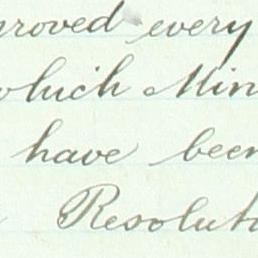 proved every
which Min
have been
Resolut